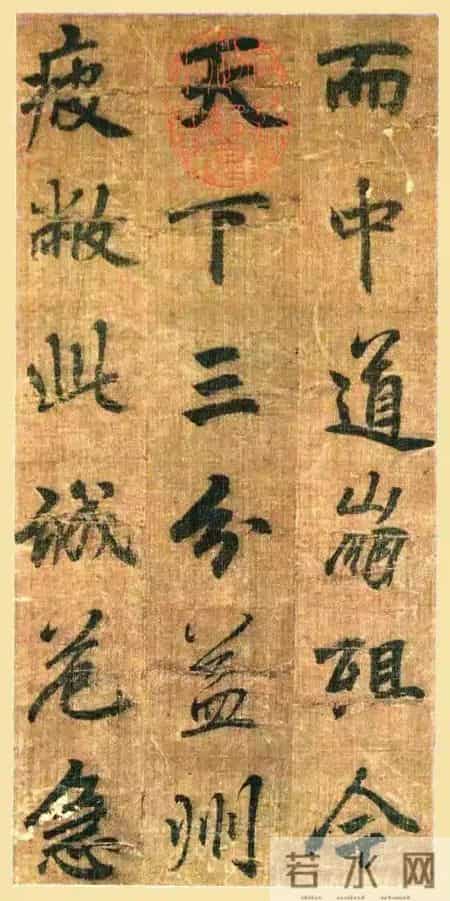 而中道崩殂今
天下三分益州
疲敝此誠危急
若水网